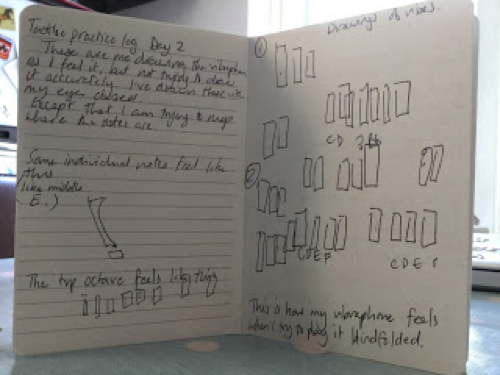 Tactile practice log Day 2
These are me drawing the vibraphone
as I feel it, but not trying to draw
it accurately. I've drawn these with
my eyes closed.
Except that I am trying to map
where the notes are.
Some individual notes feel like
this
(like middle
E.)
The top octave feels like this
Drawings of vibes.
1
C D
2
C D E F
C D E F
This is how my vibraphone feels
when I try to play it blindfolded.